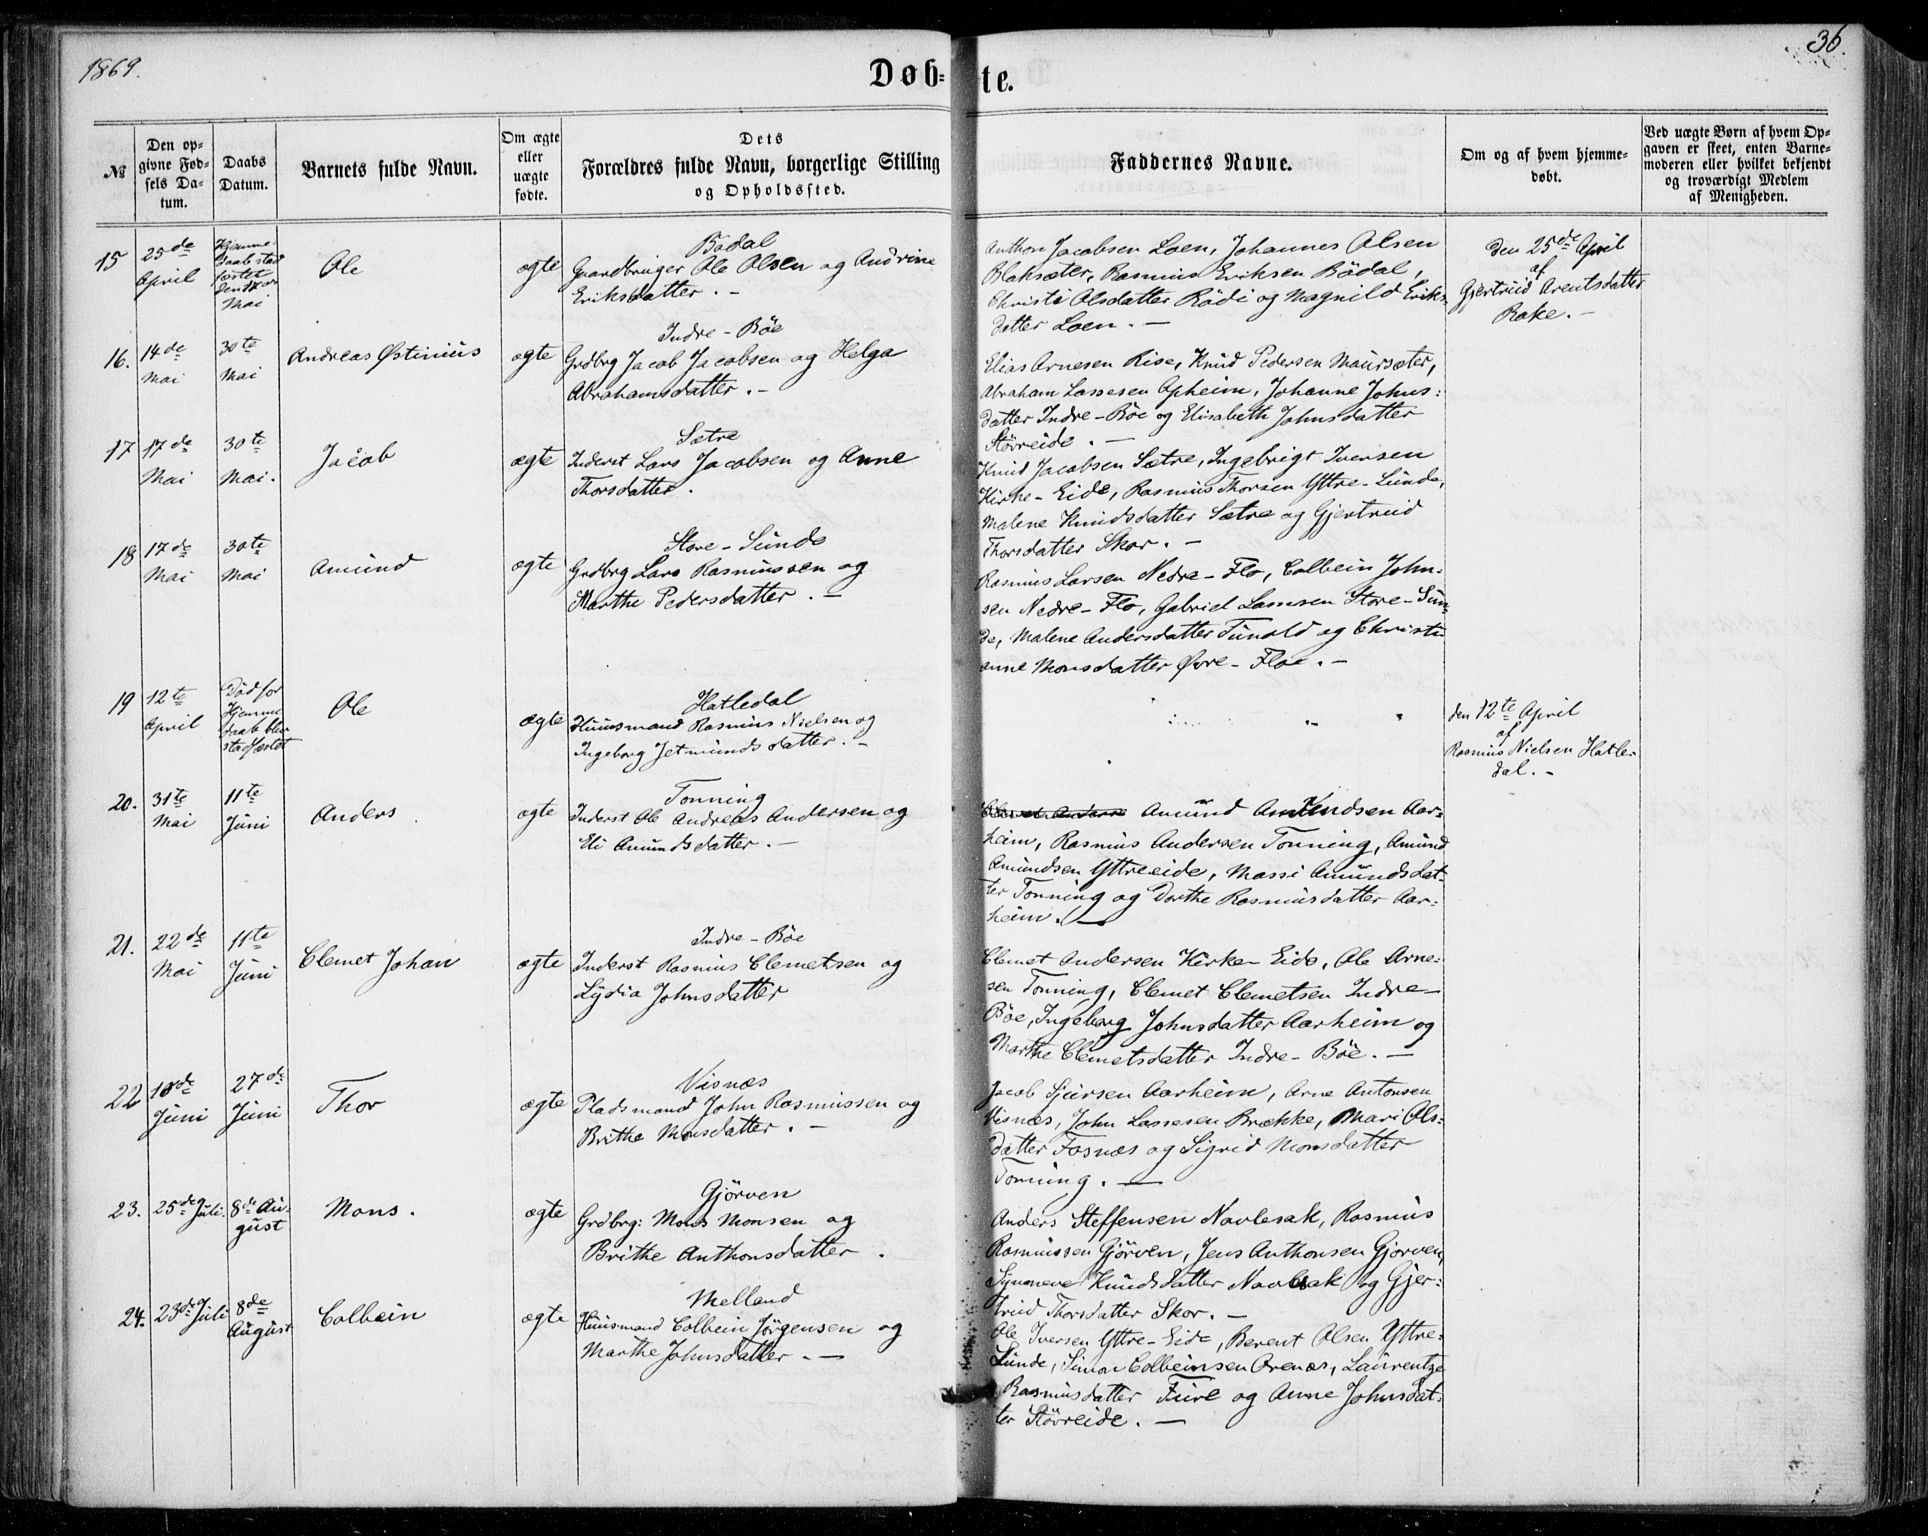 1869.
36.
Døb-te.
№
Den op-
givne Fød-
sels Da-
tum.
Daabs
Datum.
Barnets fulde Navn.
Om ægte
eller
uægte
fødte.
Dets
Forældres fulde Navn, borgerlige Stilling
og Opholdssted.
Faddernes Navne.
Om og af hvem hjemme-
døbt.
Ved uægte Børn af hvem Op-
gaven er skeet, enten Barne-
moderen eller hvilket bekjendt
og troværdigt Medlem
af Menigheden.
15
25de
April
Hjemme-
daab stad
fæstet
Mai
Ole
ægte
Bødal
Gaardbruger Ole Olsen og Andrine
Eriksdatter. -
Anthon Jacobsen Loen, Johannes Olsen
Blaksæter, Rasmus Eriksen Bødal,
Christi Olsdatter Rödi og Magnild Eriks-
datter Loen. -
Den 25de April
af
Gjertrud Arentsdatter
Rake. -
16.
14de
Mai
30te
Mai
Andreas Østinius
ægte
Indre-Böe
Grdbrg Jacob Jacobsen og Helga
Abrahamsdatter. -
Elias Arnesen Rise, Knud Pedersen Maursæter,
Abraham Lassesen Opheim, Johanne Johns-
datter Indre-Böe og Elisabeth Johnsdatter
Störreide. -
17
17de
Mai
30te
Mai.
Jacob
ægte
Sætre
Inderst Lars Jacobsen og Anne
Thorsdatter.
Knud Jacobsen Sætre, Ingebrigt Iversen
Kirke-Eide, Rasmus Thorsen Yttre-Sunde,
Malene Knudsdatter Sætre og Gjertrud
Thorsdatter Skor. -
18
17de
Mai
30te
Mai
Amund
ægte
Store-Sunde
Grdbrg Lars Rasmussen og
Marthe Pedersdatter. -
Rasmus Larsen Nedre-Flo, Colbein John-
sen Nedre-Flo, Gabriel Larssen Store-Sun-
de, Malene Andersdatter Tunold og Christi
anne Monsdatter Øvre-Floe. -
19
12te
April
Død før
Hjemme
daab blev
stadfæstet
Ole
ægte
Hatledal
Huusmand Rasmus Nielsen og
Ingeborg Jetmundsdatter. -
den 12te April
af
Rasmus Nielsen Hatle-
dal. -
20.
31te
Mai
11te
Juni
Anders
ægte
Tonning
Inderst Ole Andreas Andersen og
Eli Amundsdatter. -
Amund Amundsen Aar-
heim, Rasmus Andersen Tonning, Amund
Amundsen Yttreeide, Massi Amundsdat-
ter Tonning og Dorthe Rasmusdatter Aar-
heim. -
21.
22de
Mai
11te
Juni
Clemet Johan
ægte
Indre-Böe
Inderst Rasmus Clemetsen og
Lydia Johnsdatter
Clemet Andersen Kirke-Eide, Ole Arne-
sen Tonning, Clemet Clemetsen Indre-
Böe, Ingeborg Johnsdatter Aarheim og
Marthe Clemetsdatter Indre-Böe. -
22
10de
Juni
27de
Juni
Thor
ægte
Visnæs
Pladsmand John Rasmussen og
Brithe Monsdatter. -
Jacob Sjursen Aarheim, Arne Antonsen
Visnæs, John Lassesen Brække, Mari Ols-
datter Fosnæs og Sigrid Monsdatter
Tonning. -
23.
25de Juli.
8de Au-
gust
Mons.
ægte
Gjörven
Grdbrg: Mons Monsen og
Brithe Anthonsdatter.
Anders Steffensen Navlesak, Rasmus
Rasmussen Gjörven, Jens Anthonsen Gjörven,
Synneve Knudsdatter Navlesak og Gjer-
trud Thorsdatter Skor. -
24.
23de Juli
8de
August
Colbein
ægte
Melland
Huusmand Colbein Jörgensen og
Marthe Johnsdatter. -
Ole Iversen Yttre-Eide, Berent Olsen Yttre-
Sunde, Simon Colbeinsen Orenæs, Laurentze
Rasmusdatter Fure og Anne Johnsdat-
ter Störreide. -